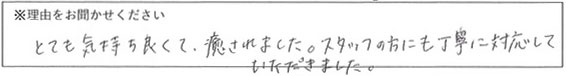 ※理由をお聞かせください
とても気持ち良くて、癒されました。スタッフの方にも丁寧に対応して
いただきました。